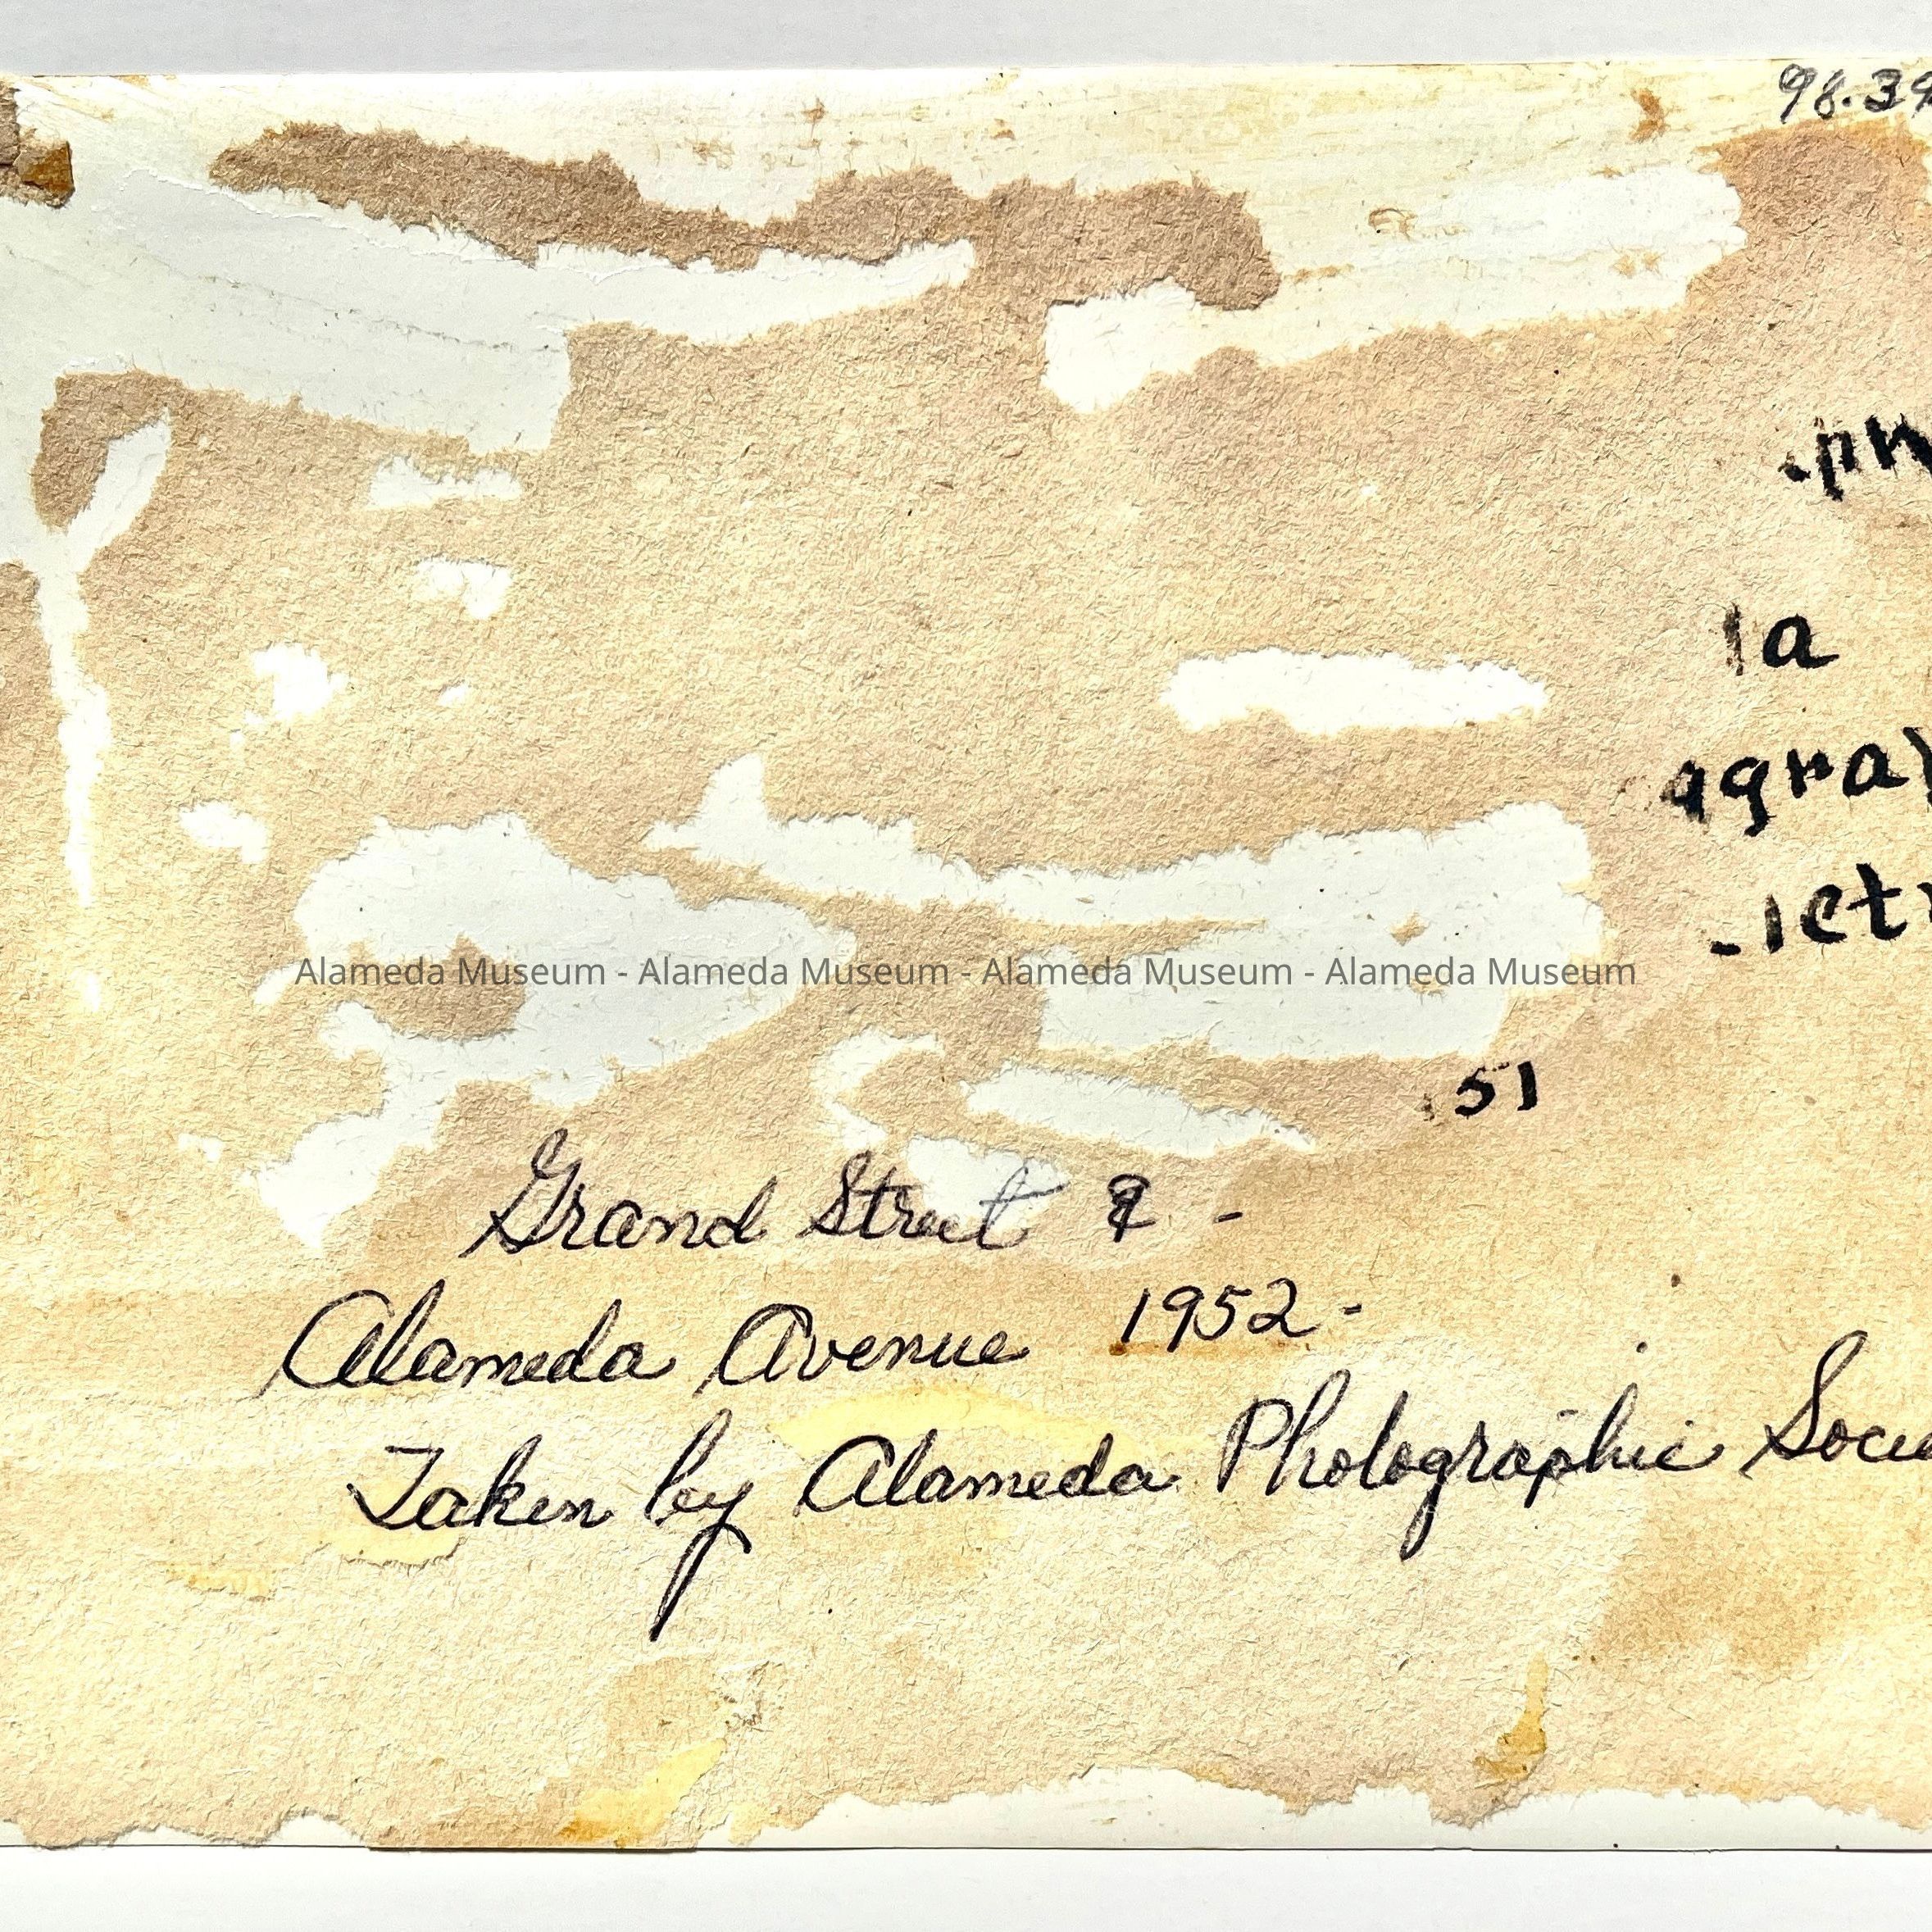 98.39
la
Alameda Museum - Alameda Museum - Alameda Museum - Alameda Museum
51
Grand Street & -
Alameda Avenue 1952 -
Taken by Alameda Photographic Socie